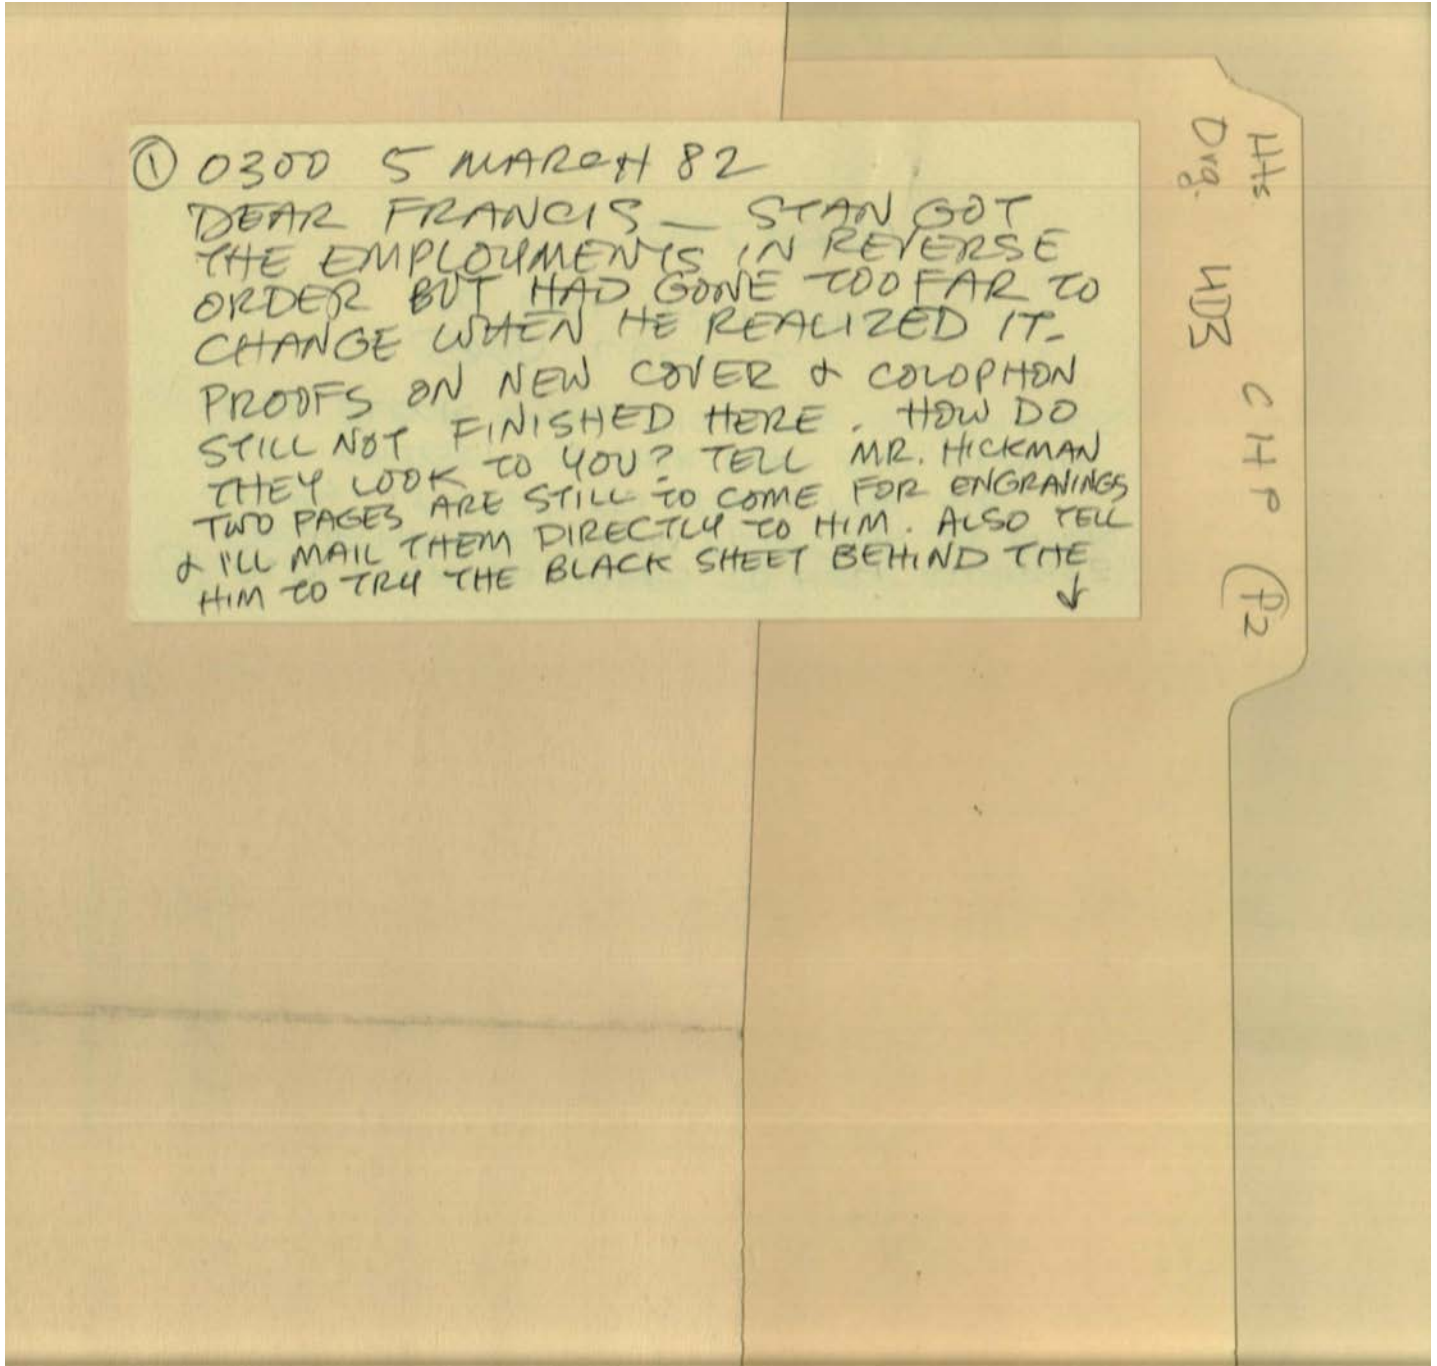 ① 0300 5 MARCH 82
DEAR FRANCIS — STAN GOT
THE EMPLOYMENTS IN REVERSE
ORDER BUT HAD GONE TOO FAR TO
CHANGE WHEN HE REALIZED IT-
PROOFS ON NEW COVER & COLOPHON
STILL NOT FINISHED HERE. HOW DO
THEY LOOK TO YOU? TELL MR. HICKMAN
TWO PAGES ARE STILL TO COME FOR ENGRAVINGS
& I'LL MAIL THEM DIRECTLY TO HIM. ALSO TELL
HIM TO TRY THE BLACK SHEET BEHIND THE
↓
Hts CHP (P2
Drg.